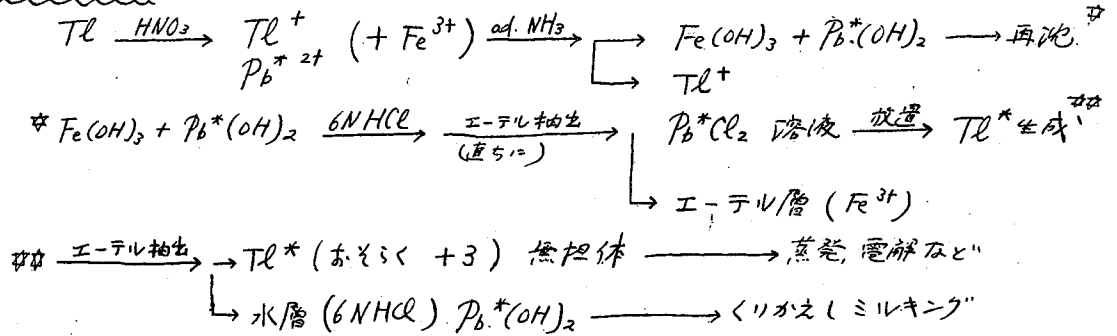 Tl —HNO₃→ Tl⁺ (+ Fe³⁺) ad. NH₃→ Fe(OH)₃ + Pb*(OH)₂ → 再沈☆
Pb*²⁺ → Tl⁺
☆ Fe(OH)₃ + Pb*(OH)₂ —6NHCl→ エーテル抽出 (直ちに)→ Pb*Cl₂ 溶液 —放置→ Tl*生成☆☆
→ エーテル層 (Fe³⁺)
☆☆ —エーテル抽出→ → Tl* (おそらく +3) 無担体 → 蒸発, 電解など
→ 水層 (6NHCl) Pb*(OH)₂ → くりかえしミルキング